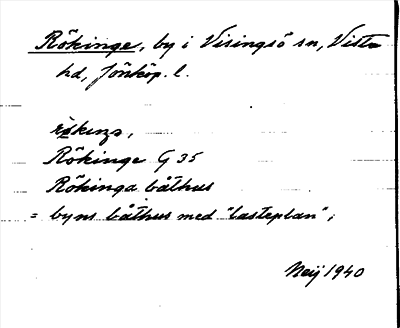 Rökinge, by i Visingsö sn, Vista
hd, Jönköp. l.
Rökinge G 35
Rökinga båthus
= byns båthus med "lasteplan";
1940